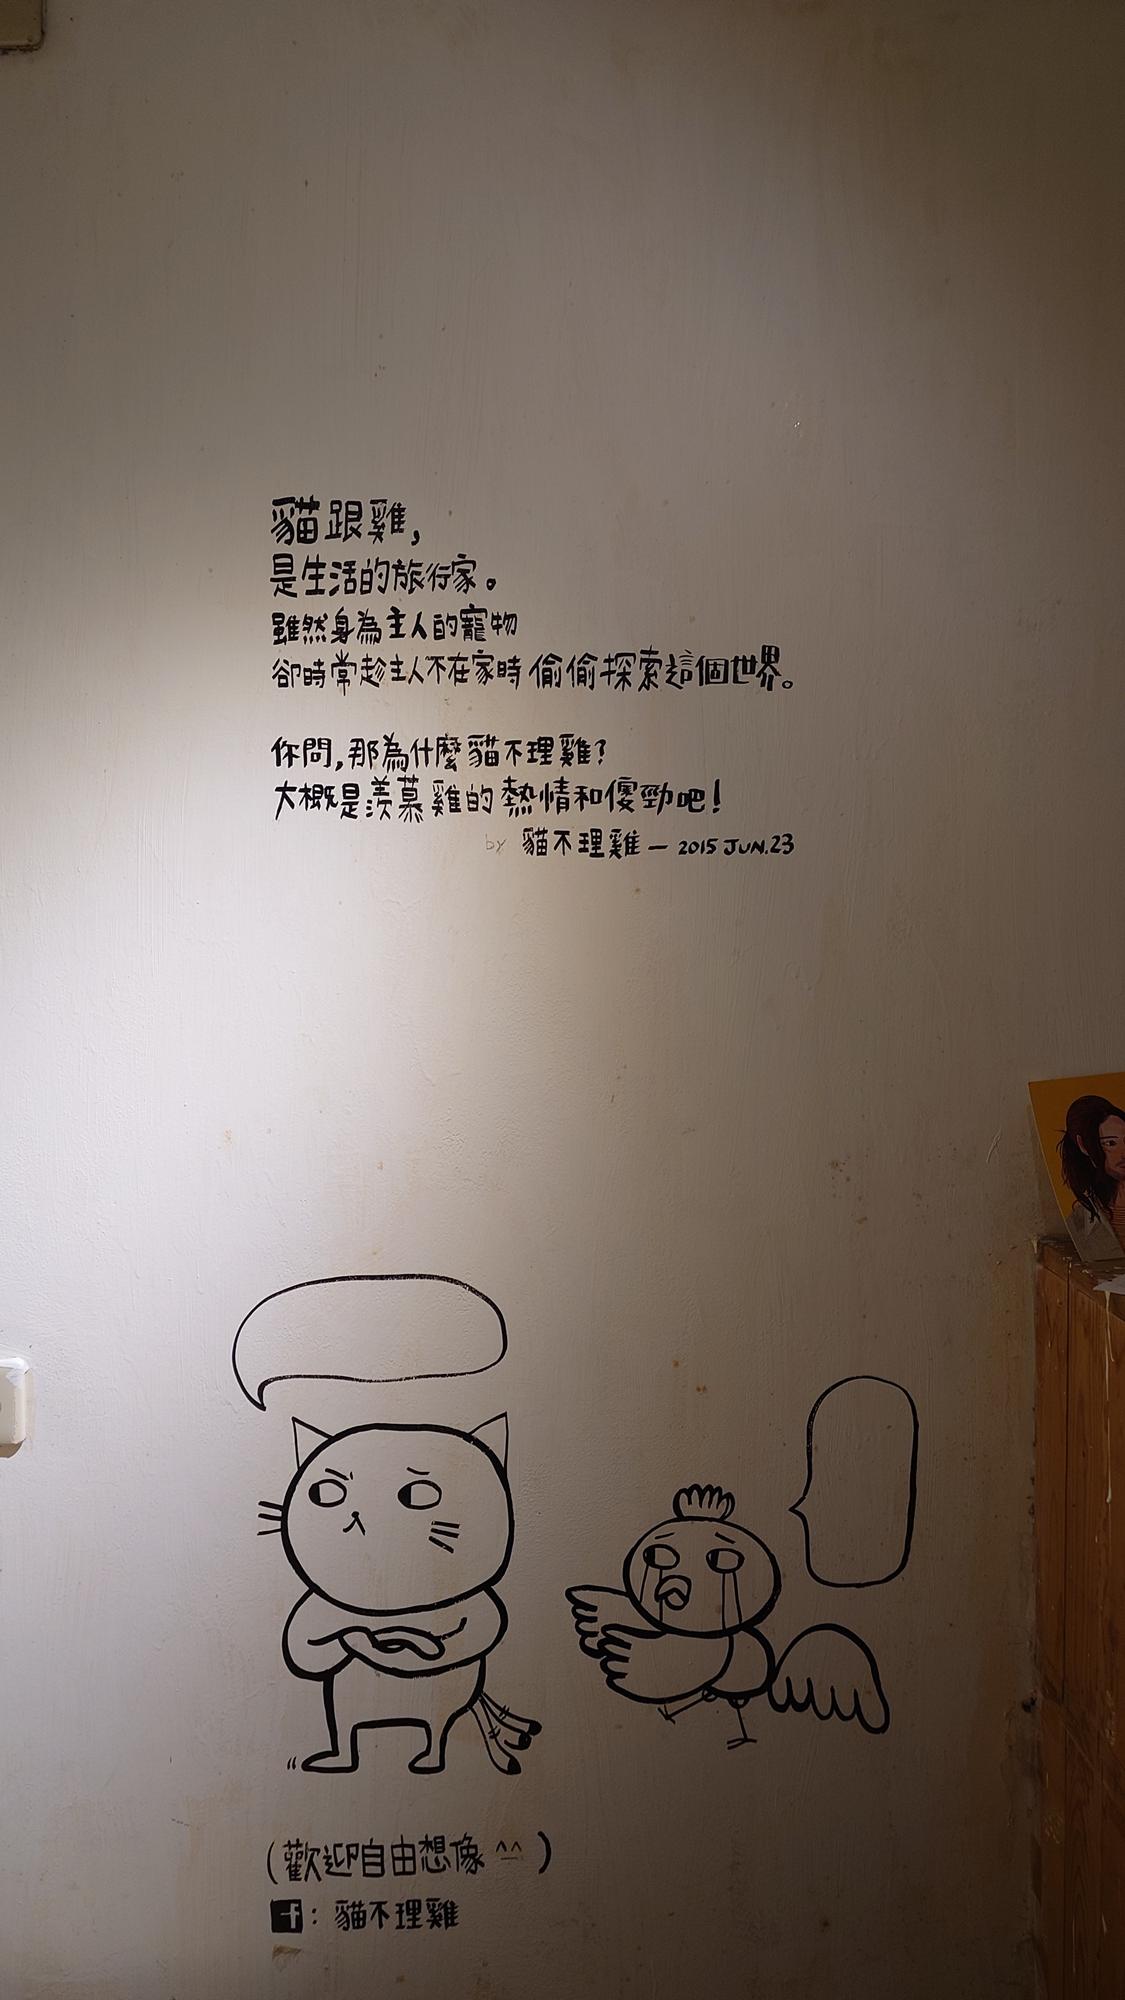 貓跟雞,
是生活的旅行家。
雖然身為主人的寵物
卻時常趁主人不在家時偷偷探索這個世界。
你問,那為什麼貓不理雞?
大概是羨慕雞的熱情和傻勁吧!
by 貓不理雞 — 2015 JUN.23
(歡迎自由想像 ^^)
f : 貓不理雞